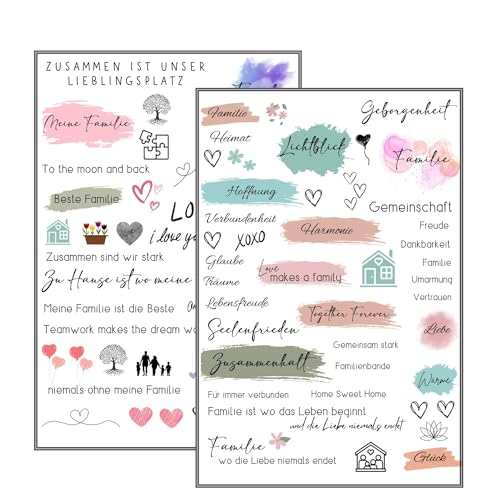 ZUSAMMEN IST UNSER
LIEBLINGSPLATZ
Meine Familie
To the moon and back
Beste Familie
i love you
Zusammen sind wir stark
Zu Hause ist wo meine
Meine Familie ist die Beste
Teamwork makes the dream
niemals ohne meine Familie
Familie
Geborgenheit
Heimat
Lichtblick
Familie
Hoffnung
Gemeinschaft
Verbundenheit
XOXO
Harmonie
Freude
Dankbarkeit
Glaube
Love
makes a family
Familie
Träume
Umarmung
Vertrauen
Lebensfreude
Together Forever
Seelenfrieden
Liebe
Gemeinsam stark
Zusammenhalt
Familienbande
Wärme
Für immer verbunden
Home Sweet Home
Familie ist wo das Leben beginnt
und die Liebe niemals endet
Familie
wo die Liebe niemals endet
Glück